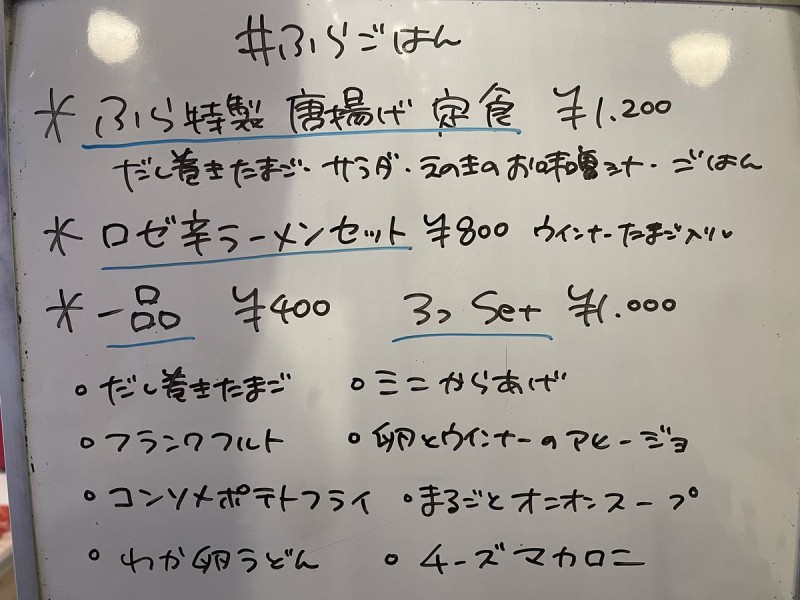 #ふらごはん
* ふら特製 唐揚げ 定食 ¥1.200
だし巻きたまご・サラダ・えのきのお味噌汁・ごはん
* ロゼ辛ラーメンセット ¥800 ウインナーたまご入り
* 一品 ¥400 3つ Set ¥1.000
○ だし巻きたまご ○ ミニからあげ
○ フランクフルト ○ 卵とウインナーのアヒージョ
○ コンソメポテトフライ ○ まるごとオニオンスープ
○ わか卵うどん ○ チーズマカロニ